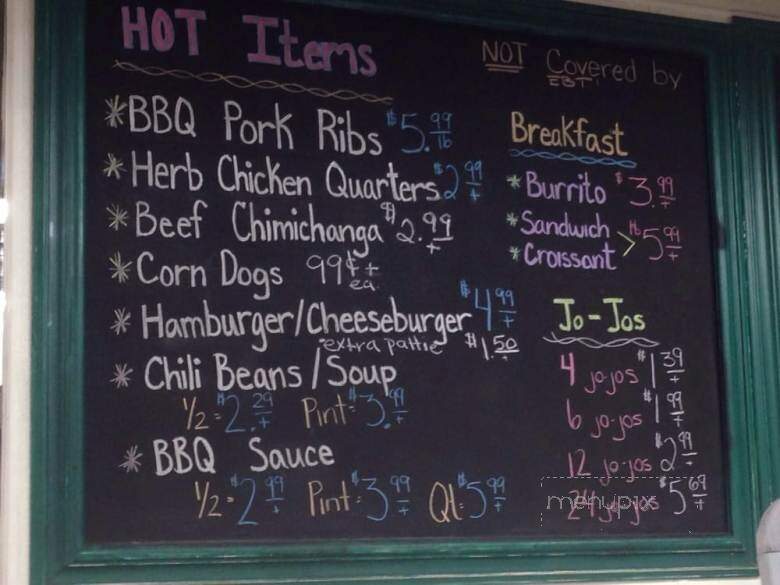 HOT Items
*BBQ Pork Ribs $5.99 lb
*Herb Chicken Quarters $2.99 +
*Beef Chimichanga $2.99 +
*Corn Dogs 99¢ + ea.
*Hamburger/Cheeseburger $4.99 +
extra pattie $1.50 +
*Chili Beans/Soup
1/2 = $2.29 + Pint = $3.99 +
*BBQ Sauce
1/2 = $2.99 + Pint = $3.99 + Qt = $5.99 +
NOT Covered by
EBT!
Breakfast
*Burrito $3.99 +
*Sandwich
*Croissant > $5.99 +
Jo-Jos
4 jo-jos $1.39 +
6 jo-jos $1.99 +
12 jo-jos $2.99 +
24 jo-jos $5.69 +
menupix